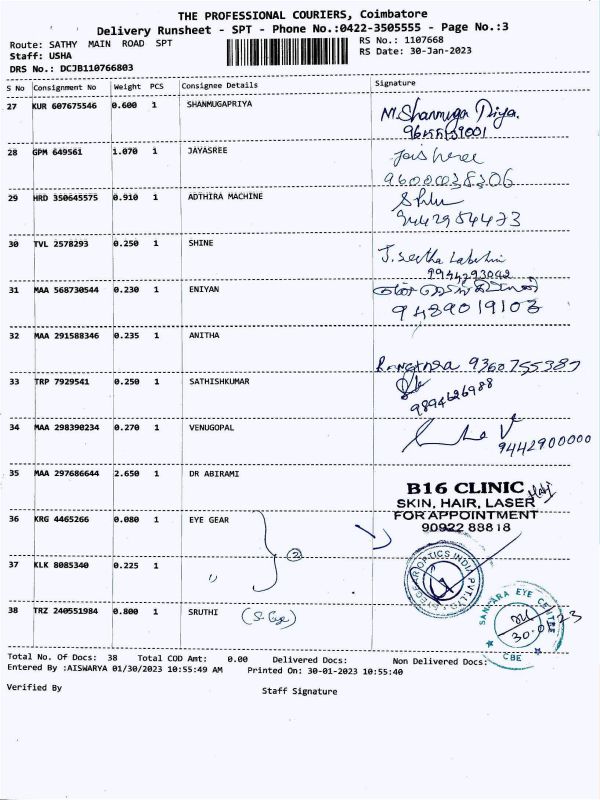 THE PROFESSIONAL COURIERS, Coimbatore
Delivery Runsheet - SPT - Phone No.:0422-3505555 - Page No.:3
Route: SATHY MAIN ROAD SPT
RS No.: 1107668
Staff: USHA
RS Date: 30-Jan-2023
DRS No.: DCJB110766803
S No Consignment No Weight PCS Consignee Details Signature
27 KUR 607675546 0.600 1 SHANMUGAPRIYA M.Shanmuga Priya.
28 GPM 649561 1.070 1 JAYASREE
9600038306
29 HRD 350645575 0.910 1 ADTHIRA MACHINE
9442984473
30 TVL 2578293 0.250 1 SHINE
J. Seetha Lakshmi
9944293092
31 MAA 568730544 0.230 1 ENIYAN
9489019103
32 MAA 291588346 0.235 1 ANITHA
9360755387
33 TRP 7929541 0.250 1 SATHISHKUMAR
9894626988
34 MAA 298390234 0.270 1 VENUGOPAL
9442900000
35 MAA 297686644 2.650 1 DR ABIRAMI
B16 CLINIC
SKIN, HAIR, LASER
FOR APPOINTMENT
90922 88818
36 KRG 4465266 0.080 1 EYE GEAR
2
EYEGEAR OPTICS INDIA PVT.LTD
37 KLK 8085340 0.225 1 "
38 TRZ 240551984 0.800 1 SRUTHI (S. Eye)
SANKARA EYE CENTRE
CBE
Total No. Of Docs: 38 Total COD Amt: 0.00 Delivered Docs: Non Delivered Docs:
Entered By :AISWARYA 01/30/2023 10:55:49 AM Printed On: 30-01-2023 10:55:40
Verified By Staff Signature